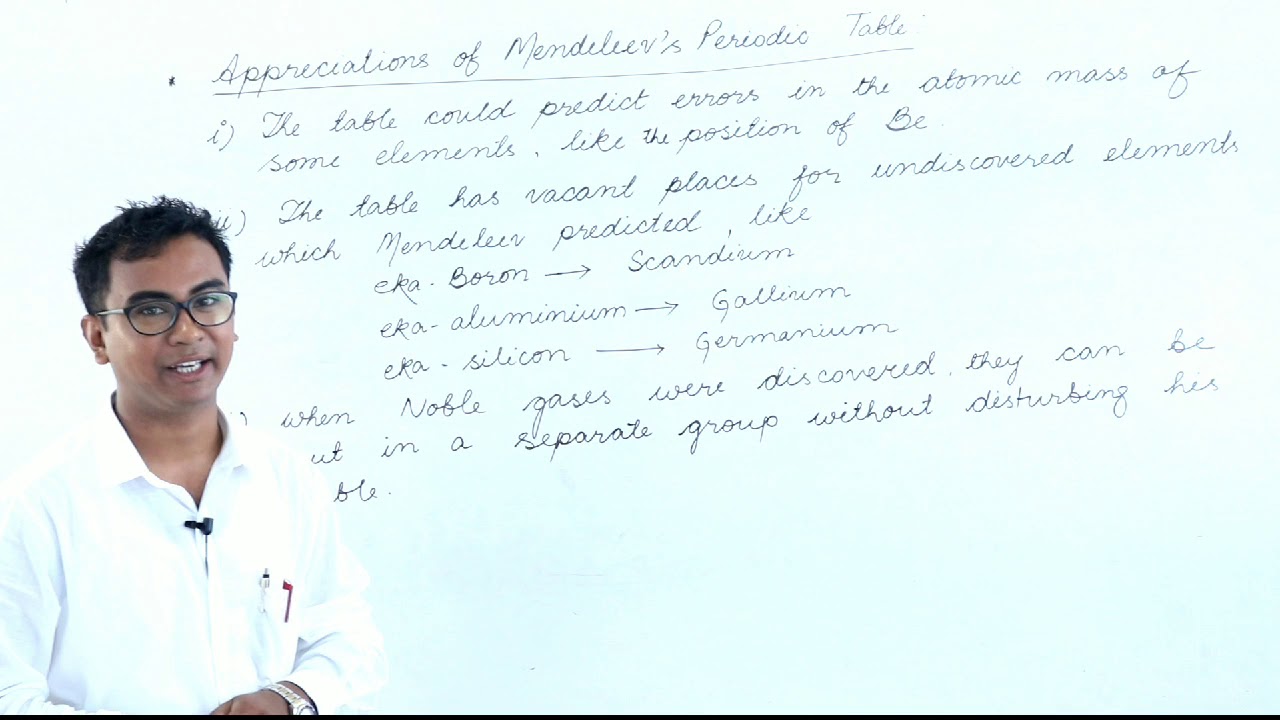 * Appreciations of Mendeleev's Periodic Table:
i) The table could predict errors in the atomic mass of
some elements, like the position of Be.
ii) The table has vacant places for undiscovered elements
which Mendeleev predicted, like
eka-Boron → Scandium
eka-aluminium → Gallium
eka-silicon → Germanium
) when Noble gases were discovered, they can be
ut in a separate group without disturbing his
ble.